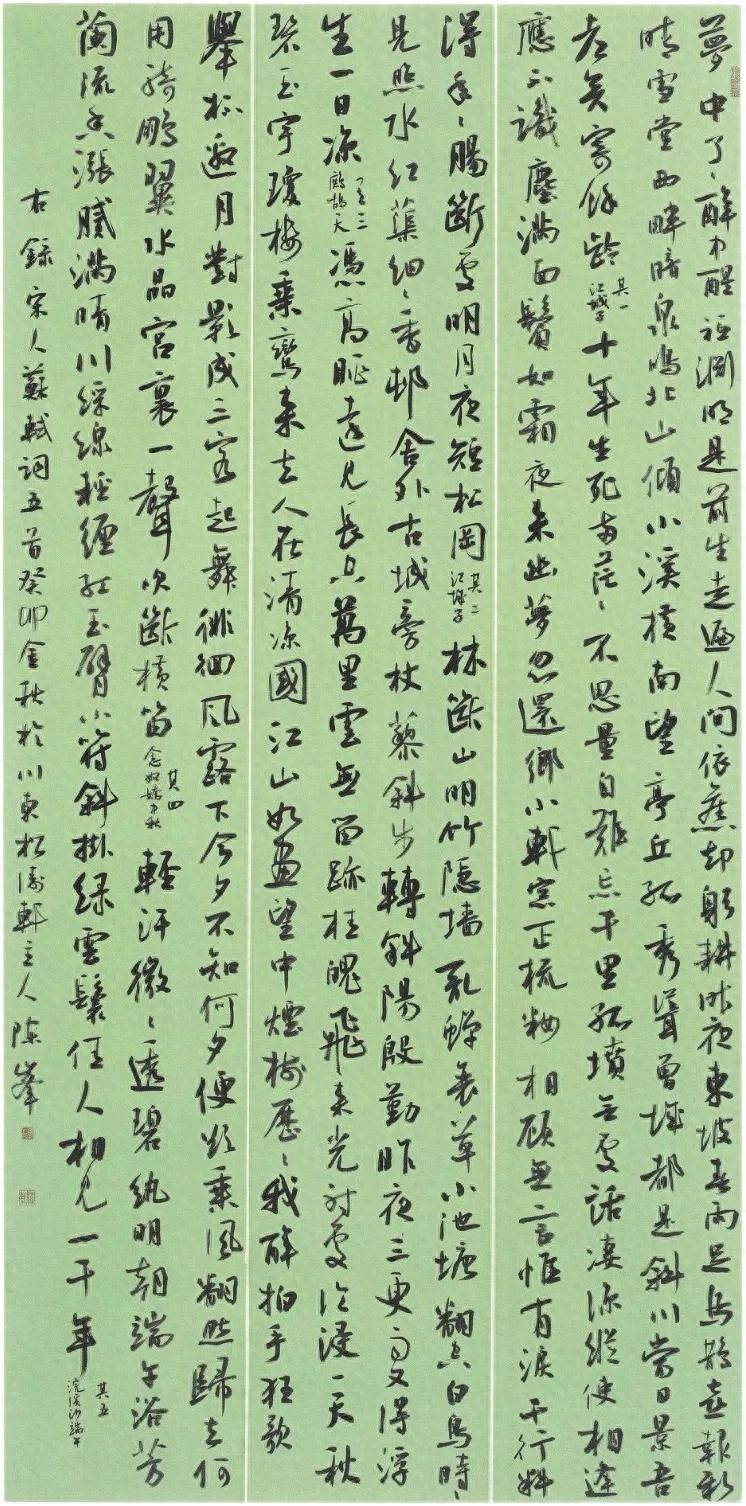 夢中了、醉中醒秖淵明是前生走遍人間依舊却躬耕昨夜東坡春雨足烏鵲喜報新
晴雪堂西畔暗泉鳴北山傾小溪橫南望亭丘孤秀聳曾城都是斜川當日景吾
老矣寄餘齡 其一江城子 十年生死兩茫、不思量自難忘千里孤墳無處話凄涼縱使相逢
應不識塵滿面鬢如霜夜來幽夢忽還鄉小軒窗正梳妝相顧無言惟有淚千行料
得年、腸斷處明月夜短松岡 其二江城子 林斷山明竹隱墻亂蟬衰草小池塘翻空白鳥時、
見照水紅蕖細、香邨舍外古城旁杖藜斜步轉斜陽殷勤昨夜三更雨又得浮
生一日涼 其三鷓鴣天 憑高眺遠見長空萬里雲無留跡桂魄飛來光射處冷浸一天秋
碧玉宇瓊樓乘鸞來去人在清涼國江山如畫望中煙樹歷、我醉拍手狂歌
舉杯邀月對影成三客起舞徘徊風露下今夕不知何夕便欲乘風翻然歸去何
用騎鵬翼水晶宮裏一聲吹斷橫笛 其四念奴嬌中秋 輕汗微、透碧紈明朝端午浴芳
蘭流香漲膩滿晴川綵線輕纏紅玉臂小符斜掛綠雲鬟佳人相見一千年 其五浣溪沙端午
右錄宋人蘇軾詞五首癸卯金秋於川東松濤軒主人陳峯